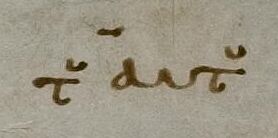 τ̆ αυτ̆